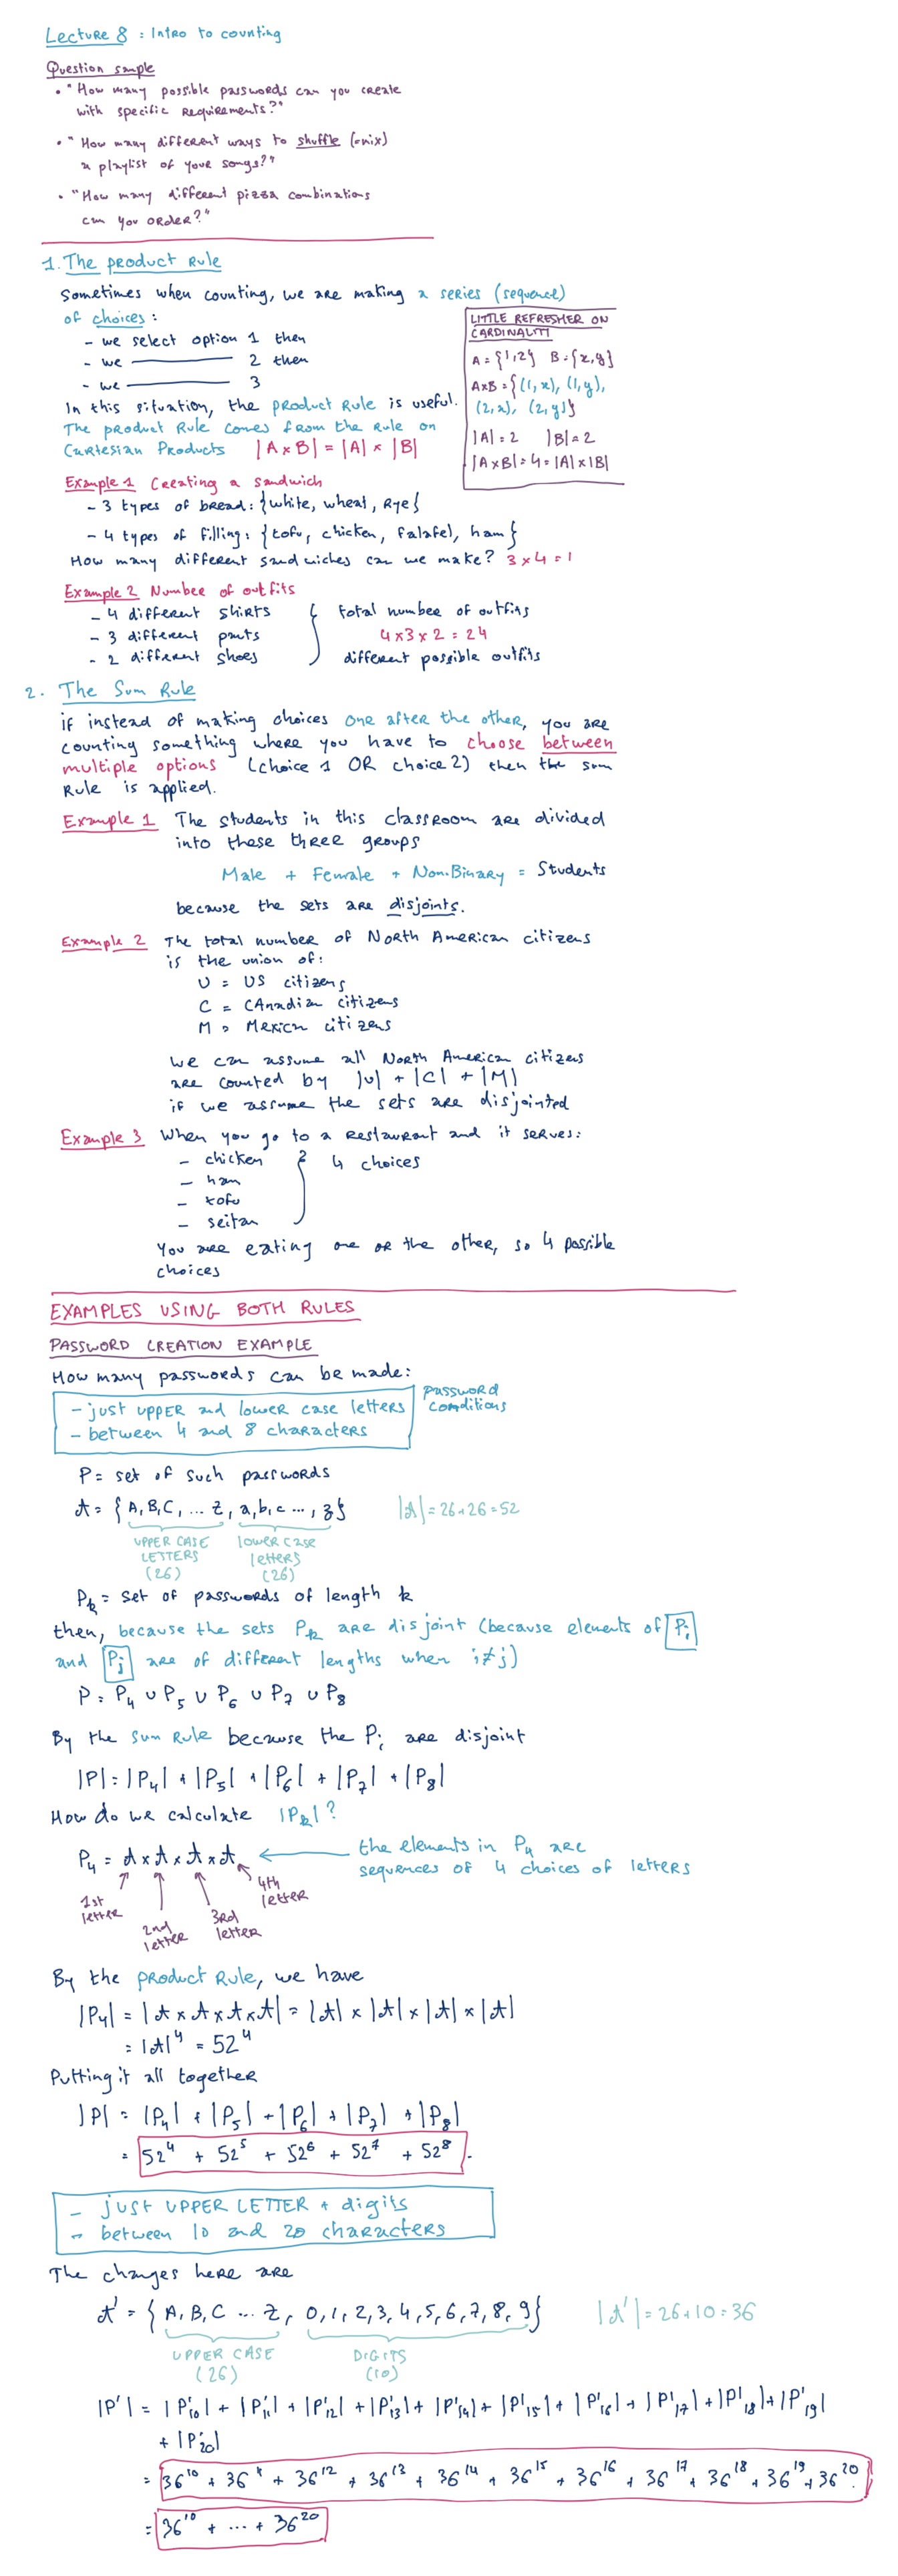 Lecture 8 : Intro to counting
Question sample
• "How many possible passwords can you create
with specific requirements?"
• "How many different ways to shuffle (=mix)
a playlist of your songs?"
• "How many different pizza combinations
can you order?"
1. The product Rule
Sometimes when counting, we are making a series (sequence)
of choices:
- we select option 1 then
- we ——— 2 then
- we ——— 3
In this situation, the product Rule is useful.
The product Rule comes from the Rule on
Cartesian Products |A × B| = |A| × |B|
LITTLE REFRESHER ON
CARDINALITY
A = {1,2} B = {x,y}
A×B = {(1, x), (1, y),
(2, x), (2, y)}
|A| = 2 |B| = 2
|A×B| = 4 = |A| × |B|
Example 1 Creating a sandwich
- 3 types of bread: {white, wheat, Rye}
- 4 types of filling: {tofu, chicken, falafel, ham}
How many different sandwiches can we make? 3 × 4 = 1
Example 2 Number of outfits
- 4 different shirts
- 3 different pants
- 2 different shoes
total number of outfits
4×3×2 = 24
different possible outfits
2. The Sum Rule
if instead of making choices one after the other, you are
counting something where you have to choose between
multiple options (choice 1 OR choice 2) then the sum
Rule is applied.
Example 1 The students in this classroom are divided
into these three groups
Male + Female + Non-Binary = Students
because the sets are disjoints.
Example 2 The total number of North American citizens
is the union of:
U = US citizens
C = CAnadian citizens
M = Mexicn citizens
we can assume all North American citizens
are counted by |U| + |C| + |M|
if we assume the sets are disjointed
Example 3 When you go to a restaurant and it serves:
- chicken
- ham
- tofu
- seitan
4 choices
You are eating one or the other, so 4 possible
choices
EXAMPLES USING BOTH RULES
PASSWORD CREATION EXAMPLE
How many passwords can be made:
- just upper and lower case letters
- between 4 and 8 characters
password
conditions
P = set of such passwords
A = {A,B,C, ... Z, a,b,c ..., z} |A| = 26+26 = 52
UPPER CASE
LETTERS
(26)
lower case
letters
(26)
Pk = set of passwords of length k
then, because the sets Pk are disjoint (because elements of Pi
and Pj are of different lengths when i≠j)
P = P4 ∪ P5 ∪ P6 ∪ P7 ∪ P8
By the sum Rule because the Pi are disjoint
|P| = |P4| + |P5| + |P6| + |P7| + |P8|
How do we calculate |Pk|?
P4 = A × A × A × A
the elements in P4 are
sequences of 4 choices of letters
1st
letter
2nd
letter
3rd
letter
4th
letter
By the product Rule, we have
|P4| = |A × A × A × A| = |A| × |A| × |A| × |A|
= |A|⁴ = 52⁴
Putting it all together
|P| = |P4| + |P5| + |P6| + |P7| + |P8|
= 52⁴ + 52⁵ + 52⁶ + 52⁷ + 52⁸.
- just UPPER LETTER + digits
- between 10 and 20 characters
The changes here are
A' = {A, B, C ... Z, 0, 1, 2, 3, 4, 5, 6, 7, 8, 9} |A'| = 26+10 = 36
UPPER CASE
(26)
DIGITS
(10)
|P'| = |P'10| + |P'11| + |P'12| + |P'13| + |P'14| + |P'15| + |P'16| + |P'17| + |P'18| + |P'19|
+ |P'20|
= 36¹⁰ + 36¹¹ + 36¹² + 36¹³ + 36¹⁴ + 36¹⁵ + 36¹⁶ + 36¹⁷ + 36¹⁸ + 36¹⁹ + 36²⁰.
= 36¹⁰ + ... + 36²⁰